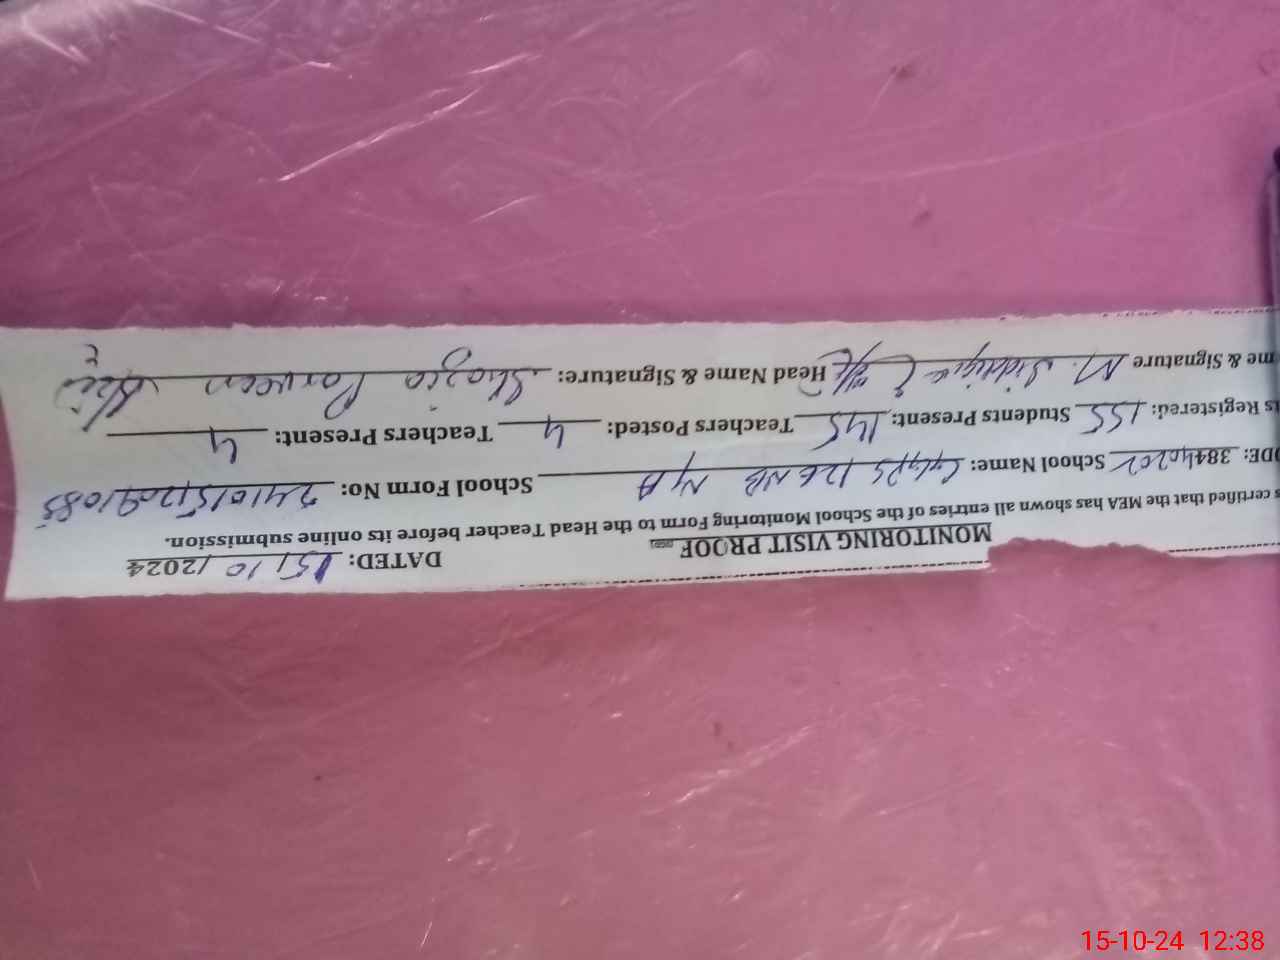 MONITORING VISIT PROOF DATED: 15/10/2024
certified that the MEA has shown all entries of the School Monitoring Form to the Head Teacher before its online submission.
DE: 3844020 School Name: GGPS 126 NB School Form No:
Registered: 155 Students Present: 145 Teachers Posted: 4 Teachers Present: 4
me & Signature M. Siddique Head Name & Signature: Shazia Parveen
15-10-24 12:38